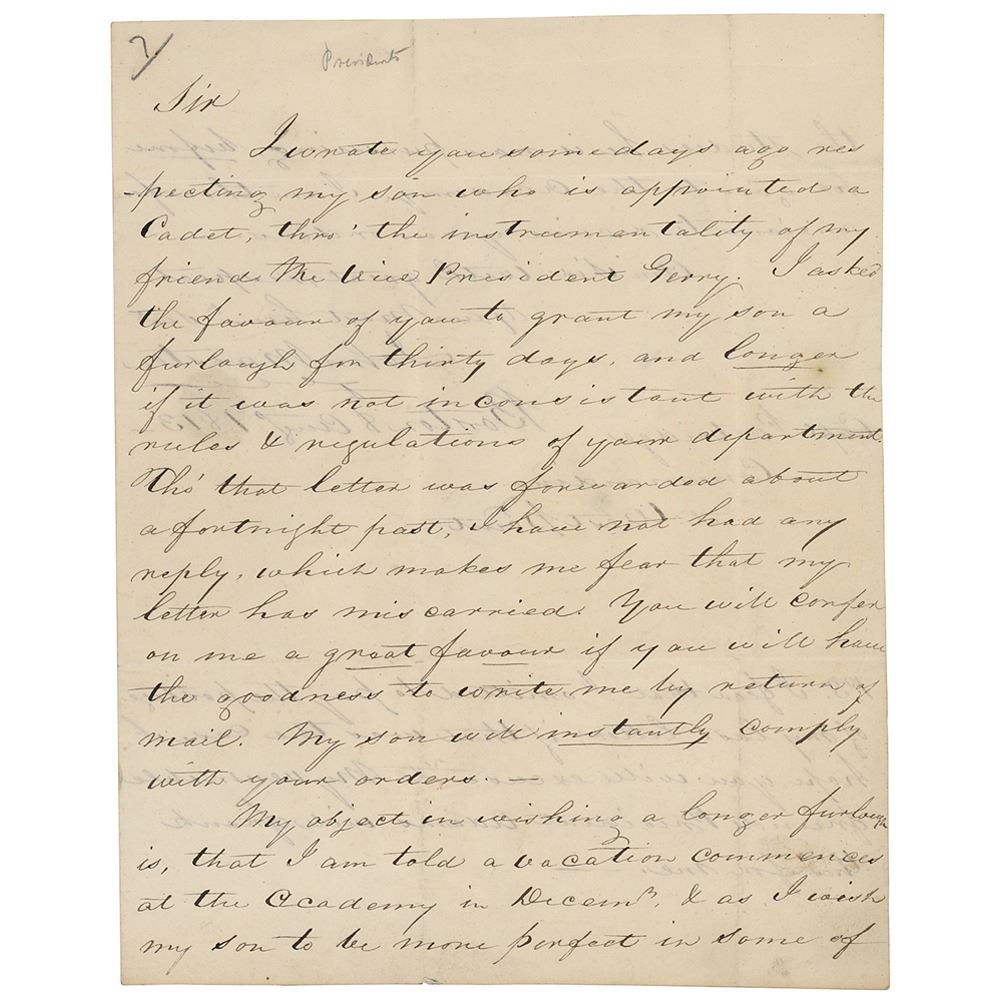 7/
Presidents
Sir
I wrote you some days ago res
-pecting my son who is appointed a
Cadet, thro' the instrumentality of my
friend the Vice President Gerry. I asked
the favour of you to grant my son a
furlough for thirty days, and longer
if it was not inconsistant with the
rules & regulations of your department.
Tho' that letter was forwarded about
a fortnight past, I have not had any
reply, which makes me fear that my
letter has miscarried. You will confer
on me a great favour if you will have
the goodness to write me by return of
mail. My son will instantly comply
with your orders. —
My object in wishing a longer furlough
is, that I am told a vacation commences
at the Academy in Decemr, & as I wish
my son to be more perfect in some of